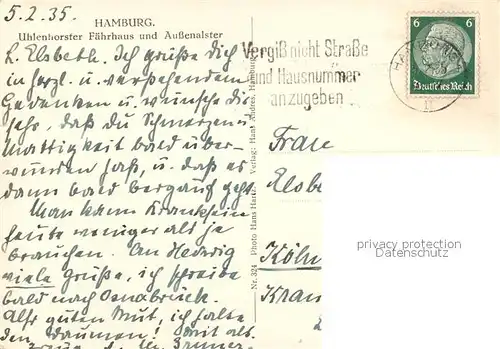 5.2.35.
HAMBURG.
Uhlenhorster Fährhaus und Außenalster
L. Elsbeth. Ich grüße dich
in herzl. u. verstehendem
Gedenken u. wünsche dir
sehr, daß du Schmerzen u.
Mattigkeit bald über-
wunden hast, u. daß es
dann bald bergauf geht.
Man kann Kranksein
heute weniger als je
brauchen. An Hedwig
viele Grüße, ich schreibe
bald nach Osnabrück.
Also guten Mut, ich halte
den Daumen! Mit
Nr. 324 Photo Hans Hartz Verlag: Hans Andres, Hamburg
Vergiß nicht Straße
und Hausnummer
anzugeben
6 6
Deutsches Reich
Frau
Elsb
Köln
Kran
privacy protection
Datenschutz